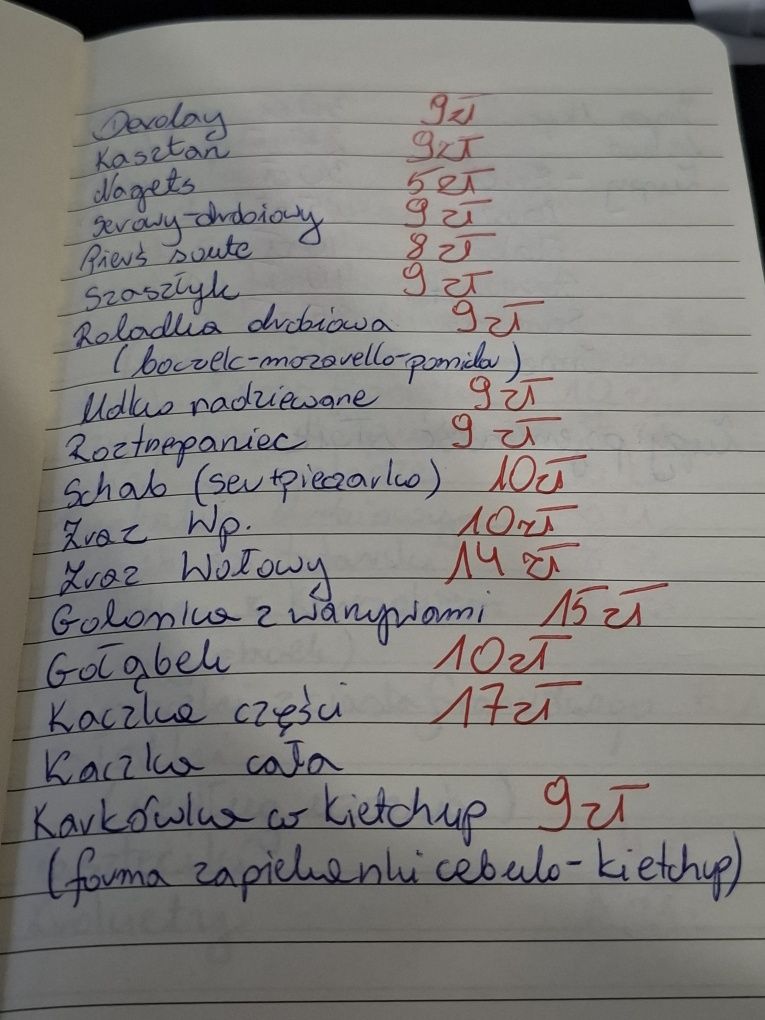 Devolay 9zł
Kasztan 9zł
Nagets 5zł
Serowy-drobiowy 9zł
Pierś soute 8zł
Szaszłyk 9zł
Roladka drobiowa 9zł
(boczek-mozarello-pomido)
Udko nadziewane 9zł
Roztrzepaniec 9zł
Schab (ser+pieczarka) 10zł
Zraz Wp. 10zł
Zraz Wołowy 14zł
Golonka z warzywami 15zł
Gołąbek 10zł
Kaczka części 17zł
Kaczka cała
Karkówka w kietchup 9zł
(forma zapiekanki cebulo-kietchup)